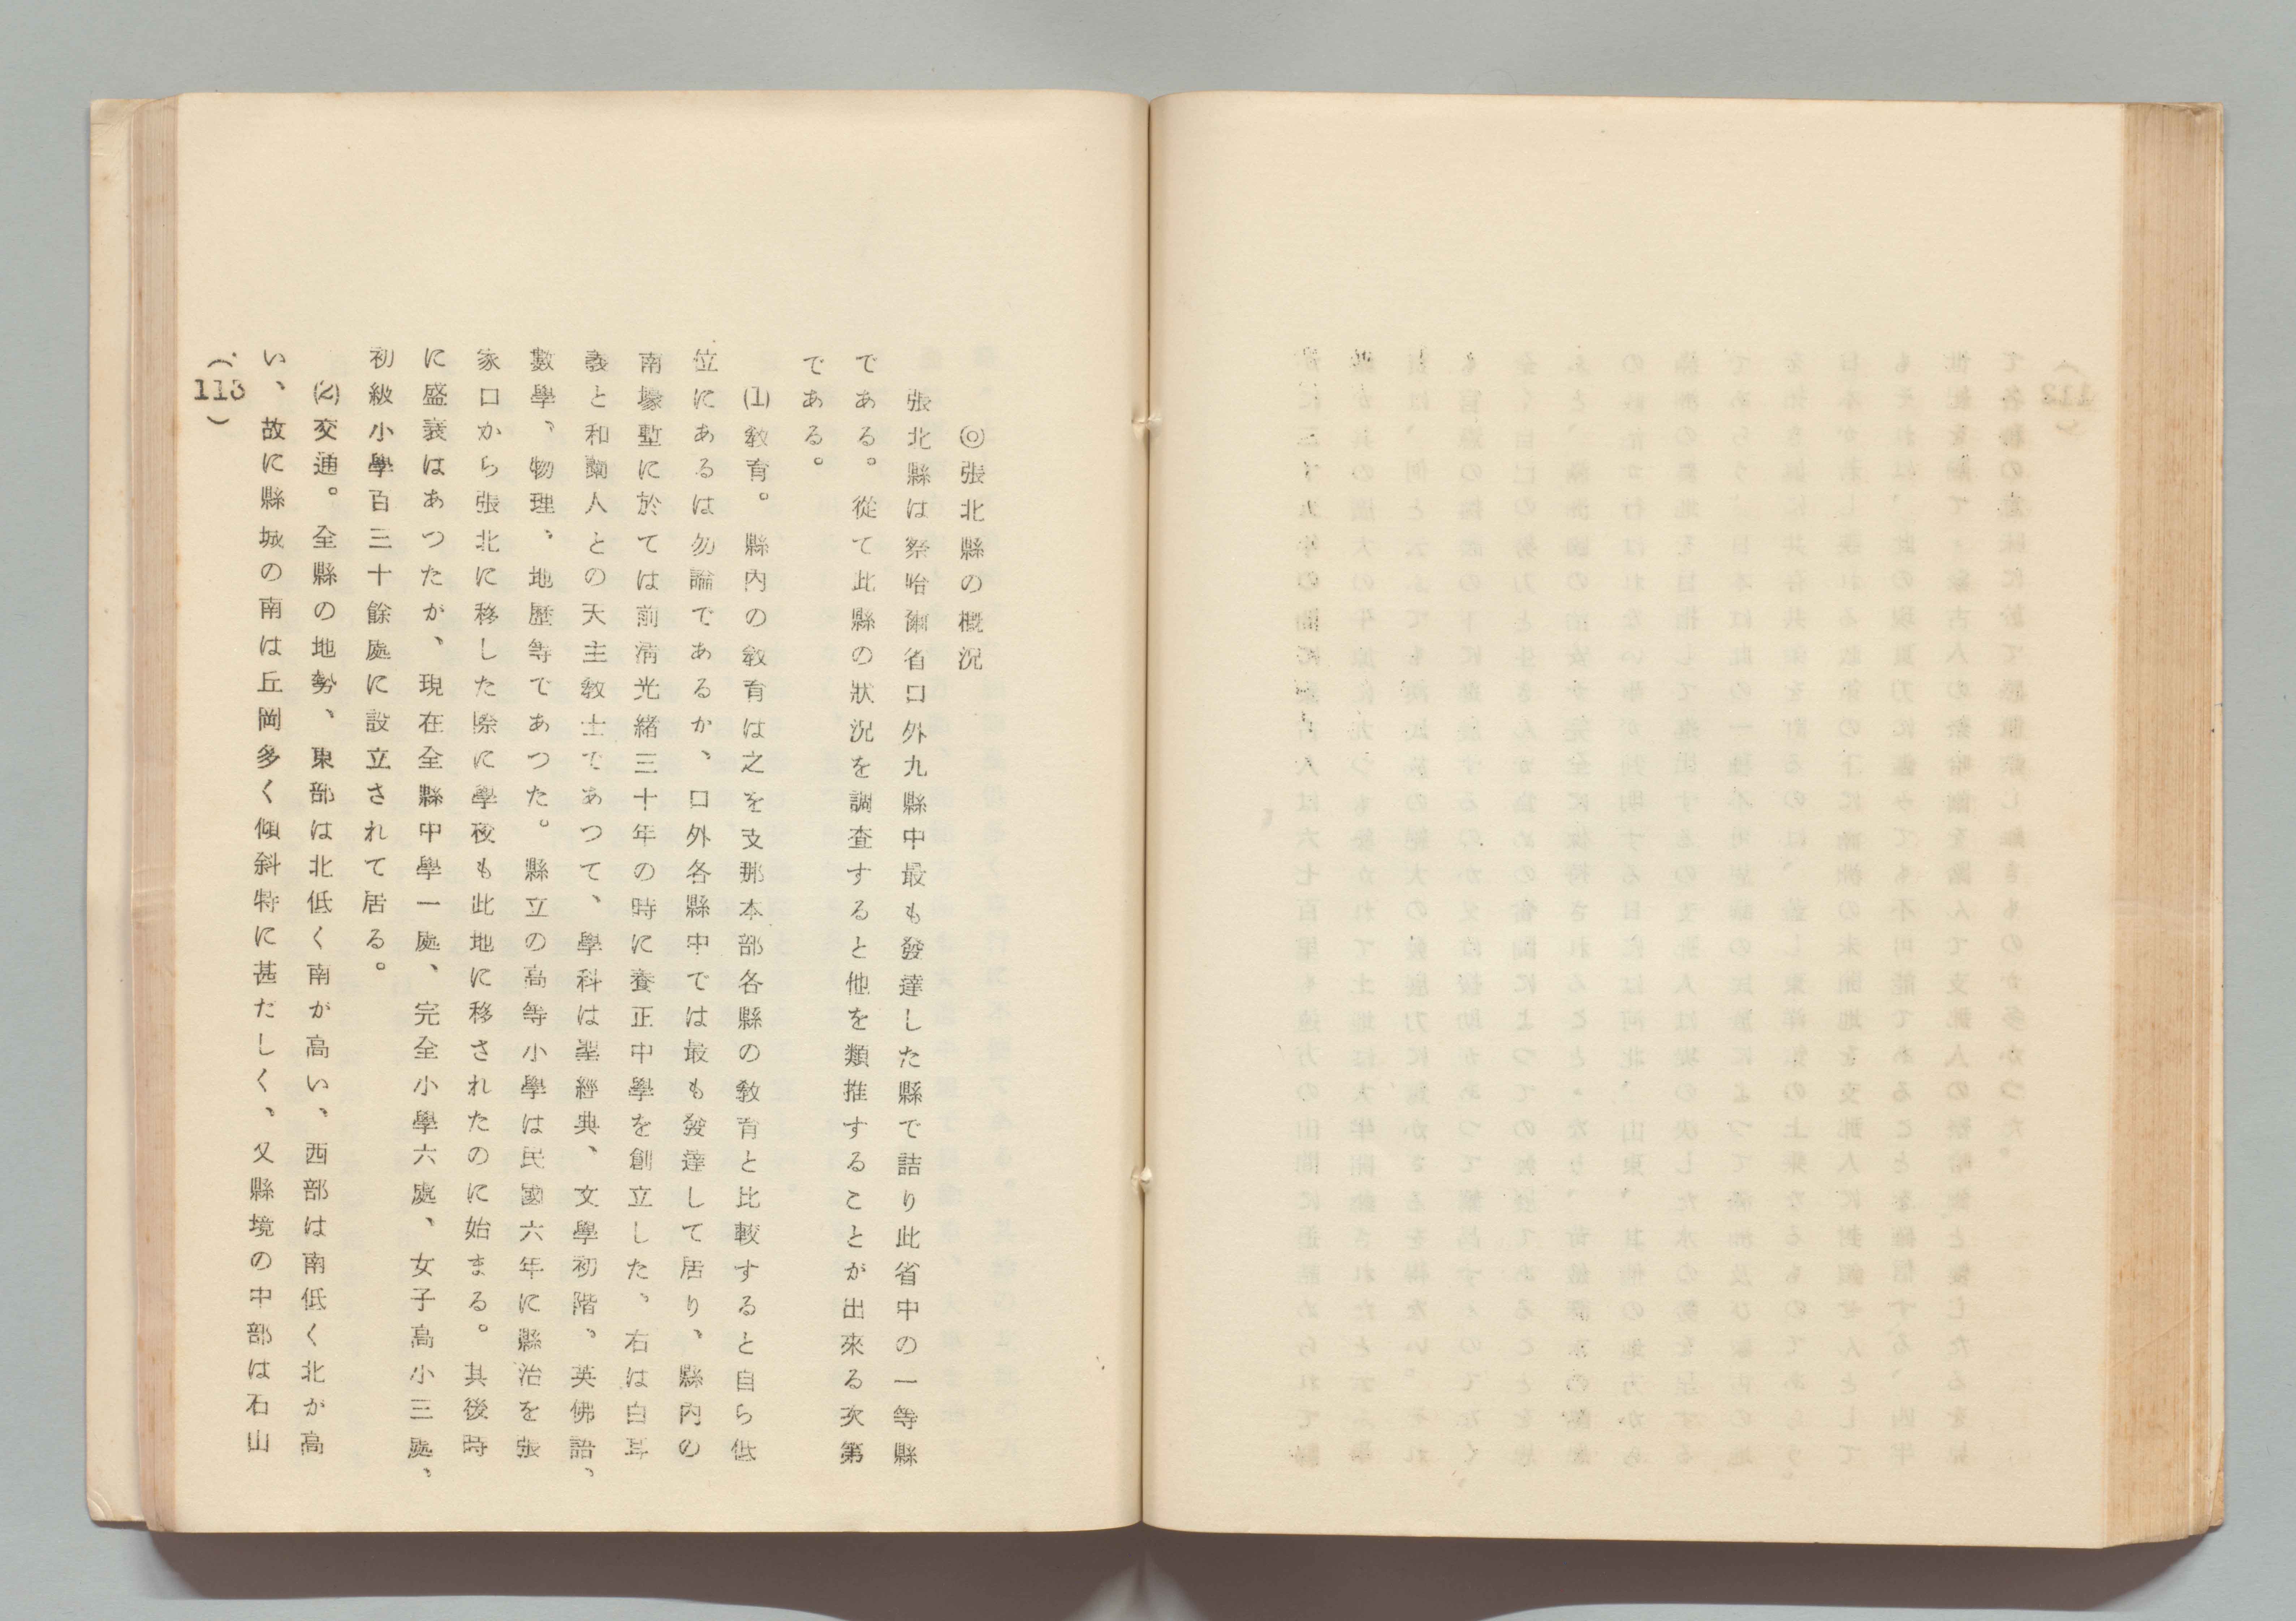 ◎張北縣の概況
張北縣は察哈爾省口外九縣中最も發達した縣で詰り此省中の一等縣
である。從て此縣の狀況を調査すると他を類推することが出來る次第
である。
(1)教育。縣內の教育は之を支那本部各縣の教育と比較すると自ら低
位にあるは勿論であるか、口外各縣中では最も發達して居り、縣內の
南壕塹に於ては前淸光緖三十年の時に養正中學を創立した、右は白耳
義と和蘭人との天主教士であつて、學科は聖經典、文學初階、英佛語、
數學、物理、地歷等であつた。縣立の高等小學は民國六年に縣治を張
家口から張北に移した際に學校も此地に移されたのに始まる。其後時
に盛衰はあつたが、現在全縣中學一處、完全小學六處、女子高小三處、
初級小學百三十餘處に設立されて居る。
(2)交通。全縣の地勢、東部は北低く南が高い、西部は南低く北が高
い、故に縣城の南は丘岡多く傾斜特に甚だしく、又縣境の中部は石山
(113)